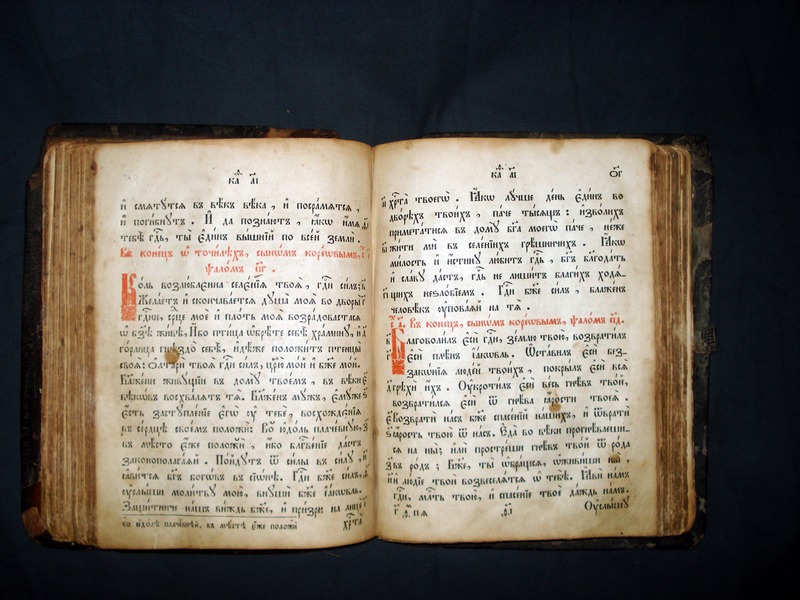 КА҃ АІ҃
и҆ смѧтꙋ́тсѧ въ вѣ́къ вѣ́ка , и҆ посра́мѧтсѧ ,
и҆ поги́бнꙋтъ . И҆ да позна́ютъ , ꙗ҆́кѡ и҆́мѧ
тебѣ̀ гдⷭ҇ь, ты̀ є҆ди́нъ вы́шнїй по все́й землѝ.
Въ коне́цъ ѡ҆ точи́лѣхъ, сынѡ́мъ коре́ѡвымъ,
ѱало́мъ п҃г .
Ко́ль возлю́бленна селє́нїѧ твоѧ̑, гдⷭ҇и си́лъ:
Жела́етъ и҆ сконча́ваетсѧ дꙋша̀ моѧ̀ во дворы̀
гдⷭ҇ни, се́рдце моѐ и҆ пло́ть моѧ̀ возра́довастасѧ
ѡ҆ бз҃ѣ жи́вѣ, И҆́бо пти́ца ѡ҆брѣ́те себѣ̀ хра́минꙋ, и҆
го́рлица гнѣздо̀ себѣ̀, и҆дѣ́же положи́тъ птенцы̀
своѧ̑: Ѻ҆лтари̑ твоѧ̑ гдⷭ҇и си́лъ, цр҃ю̀ мо́й и҆ бж҃е мо́й.
Бл҃же́ни живꙋ́щїи въ домꙋ̀ твое́мъ, въ вѣ́ки
вѣкѡ́въ восхва́лѧтъ тѧ̀. Бл҃же́нъ мꙋ́жъ, є҆мꙋ́же
є҆́сть застꙋпле́нїе є҆гѡ̀ ᲂу҆ тебѐ, восхождє́нїѧ
въ се́рдцѣ свое́мъ положѝ: Во ю҆до́ль плаче́внꙋю,
въ мѣ́сто є҆́же положѝ , и҆́бо благⷭ҇ве́нїе да́стъ
законополага́ѧй . По́йдꙋтъ ѿ си́лы въ си́лꙋ , ꙗ҆-
ви́тсѧ бг҃ъ богѡ́въ въ сїѡ́нѣ. Гдⷭ҇и бж҃е си́лъ,
ᲂу҆слы́ши моли́твꙋ мою̀, внꙋшѝ бж҃е і҆а́кѡвль.
Защи́тниче на́шъ ви́ждь бж҃е, и҆ при́зри на лицѐ
во ю҆до́лѣ плаче́внѣй, въ мѣ́стѣ є҆́же положѝ
хрⷭ҇та̀
КА҃ АІ҃ ѺГ҃
хрⷭ҇та̀ твоегѡ̀. Ꙗ҆́кѡ лꙋ́чше де́нь є҆ди́нъ во
дво́рѣхъ твои́хъ , па́че ты́сѧщъ : и҆зво́лихъ
примета́тисѧ въ домꙋ̀ бг҃а моегѡ̀ па́че , не́же
жи́ти мѝ въ селе́нїихъ грѣ́шничихъ . Ꙗ҆́кѡ
ми́лость и҆ и҆́стинꙋ лю́битъ гдⷭ҇ь , бг҃ъ благода́ть
и҆ сла́вꙋ да́стъ, гдⷭ҇ь не лиши́тъ благи́хъ ходѧ́-
щихъ неѕло́бїемъ . Гдⷭ҇и бж҃е си́лъ , блаже́нъ
человѣ́къ ᲂу҆пова́ѧй на тѧ̀ .
Въ коне́цъ, сынѡ́мъ коре́ѡвымъ, ѱало́мъ п҃д.
Благоволи́лъ є҆сѝ гдⷭ҇и, зе́млю твою̀, возврати́лъ
є҆сѝ плѣ́нъ і҆а́кѡвль. Ѡ҆ста́вилъ є҆сѝ без-
закѡ́нїѧ люде́й твои́хъ , покры́лъ є҆сѝ всѧ̑
грѣхѝ и҆́хъ . Оу҆кроти́лъ є҆сѝ ве́сь гнѣ́въ тво́й,
возврати́лсѧ є҆сѝ ѿ гнѣ́ва ꙗ҆́рости твоеѧ̀ .
Возвратѝ на́съ бж҃е спасе́нїй на́шихъ, и҆ ѿвратѝ
ꙗ҆́рость твою̀ ѿ на́съ . Є҆да̀ во вѣ́ки прогнѣ́ваеши-
сѧ на ны̀; и҆лѝ простре́ши гнѣ́въ тво́й ѿ ро́да
въ ро́дъ ; Бж҃е, ты̀ ѡ҆бра́щсѧ, ѡ҆живи́ши ны̀
и҆ лю́дїе твоѝ возвеселѧ́тсѧ ѡ҆ тебѣ̀. Ꙗ҆вѝ на́мъ
гдⷭ҇и, млⷭ҇ть твою̀, и҆ спасе́нїе твоѐ да́ждь на́мъ.
Оу҆слы́шꙋ